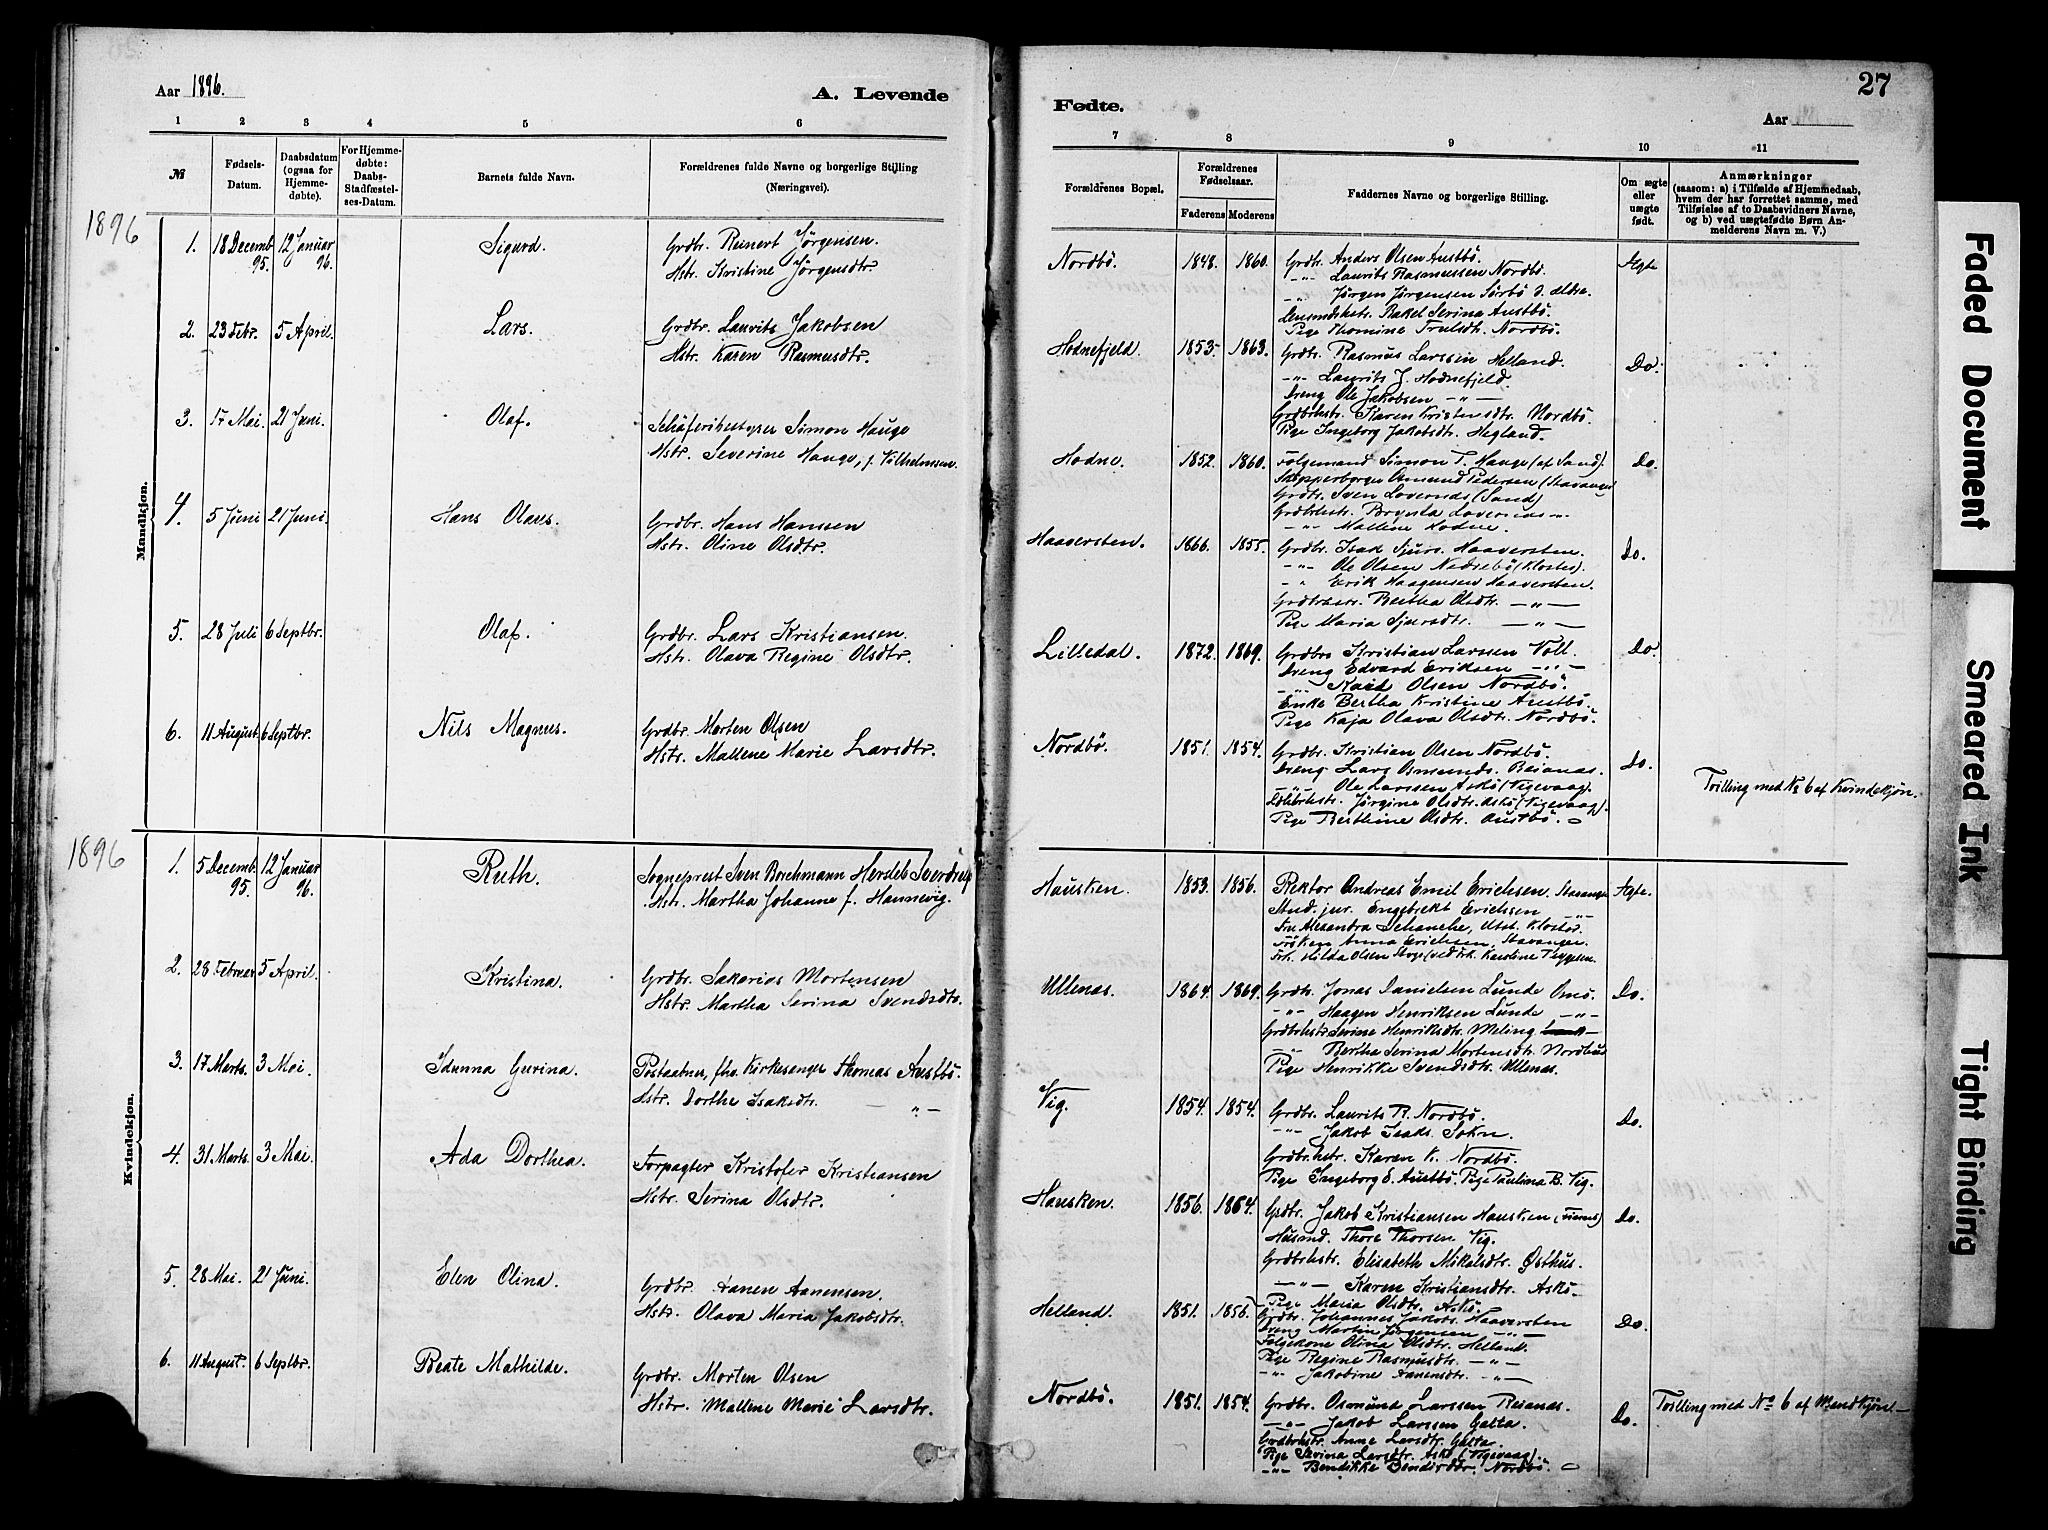 Aar 1896.
A. Levende
Fødte.
27
Aar
1 2 3 4 5 6 7 8 9 10 11
№
Fødsels-Datum.
Daabsdatum (ogsaa for Hjemmedøbte).
For Hjemmedøbte: Daabs-Stadfæstelses-Datum.
Barnets fulde Navn.
Forældrenes fulde Navne og borgerlige Stilling (Næringsvei).
Forældrenes Bopæl.
Forældrenes Fødselsaar.
Faderens Moderens
Faddernes Navne og borgerlige Stilling.
Om ægte eller uægte født.
Anmærkninger
(saasom: a) i Tilfælde af Hjemmedaab, hvem der har forrettet samme, med Tilføielse af to Daabsvidners Navne, og b) ved uægtefødte Børn Anmelderens Navn m. V.)
1896
Mandkjøn.
1. 18 Decemb. 95. 12 Januar 96. Sigurd. Grdbr. Reinert Jørgensen.
Hstr. Kristine Jørgensdtr.
Nordbø. 1848. 1860. Grdbr. Anders Olsen Austbø. Ægte
-"- Laurits Rasmussen Nordbø.
-"- Jørgen Jørgensen Sørbø d. ældre.
Lensmdshstr. Rakel Serina Austbø.
Pige Thomine Trulsdtr. Nordbø.
2. 23 Febr. 5 April. Lars. Grdbr. Laurits Jakobsen
Hstr. Karen Rasmusdtr.
Hodnefjeld. 1853. 1863. Grdbr. Rasmus Larssen Helland. Do.
-"- Laurits J. Hodnefjeld.
Dreng Ole Jakobsen -"-
Grdbrhstr. Karen Kristensdtr. Nordbø.
Pige Ingeborg Jakobsdtr. Hegland.
3. 17 Mai. 21 Juni. Olaf. Schäferibestyrer Simon Hauge
Hstr. Severine Hauge, f. Vilhelmsen.
Hodne. 1852. 1860. Følgemand Simon T. Hauge (af Sand). Do.
Skipperborger Osmund Pedersen (Stavanger
Grdbr. Sven Lovernæs (Sand)
Grdbrhstr. Birgitta Lovernæs -"-
-"- Mallene Hodne.
4. 5 Juni 21 Juni. Hans Olaus. Grdbr. Hans Hansen
Hstr. Oline Olsdtr.
Haaversten. 1866. 1855. Grdbr. Isak Sjurs. Haaversten. Do.
-"- Ole Olsen Nædrebø (Kloster).
-"- Erik Haagensen Haaversten.
Grdbrhstr. Bertha Olsdtr. -"-
Pige Maria Sjursdtr. -"-
5. 28 Juli 6 Septbr. Olaf. Grdbr. Lars Kristiansen.
Hstr. Olava Regine Olsdtr.
Lilledal. 1872. 1869. Grdbr. Kristian Larssen Voll. Do.
Dreng Edvard Eriksen -"-
-"- Olsen Nordbø.
Enke Bertha Kristine Austbø.
Pige Kaja Olava Olsdtr. Nordbø.
6. 11 August. 6 Septbr. Nils Magnus. Grdbr. Morten Olsen
Hstr. Mallene Marie Larsdtr.
Nordbø. 1851. 1854. Grdbr. Kristian Olsen Nordbø. Do.
Dreng Lars Osmunds. Reianæs.
-"- Ole Larssen Askø (Vigevaag).
Jørgine Olsdtr. Askø (Vigevaag).
Pige Berthine Olsdtr. Austbø.
Tvilling med № 6 af Kvindekjøn.
1896
Kvindekjøn.
1. 5 Decemb. 95. 12 Januar 96. Ruth. Sogneprest Sven Borchmann Hersleb Sverdrup
Hstr. Martha Johanne f. Hannevig.
Hausken. 1853. 1856. Rektor Andreas Emil Erichsen. Stavanger Ægte.
Stud. jur. Engebrekt Erichsen -"-
Fru Alexandra Schanche, Utst. Kloster.
Frøken Anna Erichsen, Stavanger.
Frk. Hilda Olsen
2. 28 Februar 5 April. Kristina. Grdbr. Sakarias Mortensen
Hstr. Martha Serina Svendsdtr.
Ullenæs. 1864. 1869. Grdbr. Jonas Danielsen Lunde Omø. Do.
-"- Haagen Henriksen Lunde -"-
Grdbrhstr. Serine Henriksdtr. Meling
-"- Bertha Serina Mortensdtr. Nordhus
Pige Henrikke Svendsdtr. Ullenæs.
3. 17 Marts. 3 Mai. Idunna Gurina. Postaabner, fhv. Kirkesanger Thomas Austbø.
Hstr. Dorthe Isaksdtr. -"-
Vig. 1854. 1854. Grdbr. Laurits R. Nordbø. Do.
-"- Jakob Isaks. Sokn.
Grdbrhstr. Karen K. Nordbø.
Pige Ingeborg E. Austbø. Pige Paulina B. Vig.
4. 31 Marts. 3 Mai. Ada Dorthea. Forpagter Kristofer Kristiansen
Hstr. Serina Olsdtr.
Hausken. 1856. 1864. Grdbr. Jakob Kristiansen Hausken Do.
Husmd. Thore Thorsen Vig.
Grdbrhstr. Elisabeth Mikalsdtr. Østhus.
-"- Karen Kristiansdtr. Askø.
Pige Maria Olsdtr. Askø.
5. 28 Mai. 21 Juni. Elen Olina. Grdbr. Aanen Aanensen.
Hstr. Olava Maria Jakobsdtr.
Helland. 1851. 1856. Grdbr. Johannes Jakobs. Haaversten Do.
Dreng Martin Jørgensen -"-
Følgekone Olina Olsdtr. Helland.
Pige Regine Rasmusdtr. -"-
-"- Jakobine Aanensdtr. -"-
6. 11 August. 6 Septbr. Beate Mathilde. Grdbr. Morten Olsen
Hstr. Mallene Marie Larsdtr.
Nordbø. 1851. 1854. Grdbr. Osmund Larssen Reianæs. Do.
-"- Jakob Larssen Galta.
Grdbrhstr. Anne Larsdtr. Galta.
Pige Serina Larsdtr. Askø (Vigevaag).
-"- Bendikke Nordbø.
Tvilling med № 6 af Mandkjøn.
Faded Document
Smeared Ink
Tight Binding